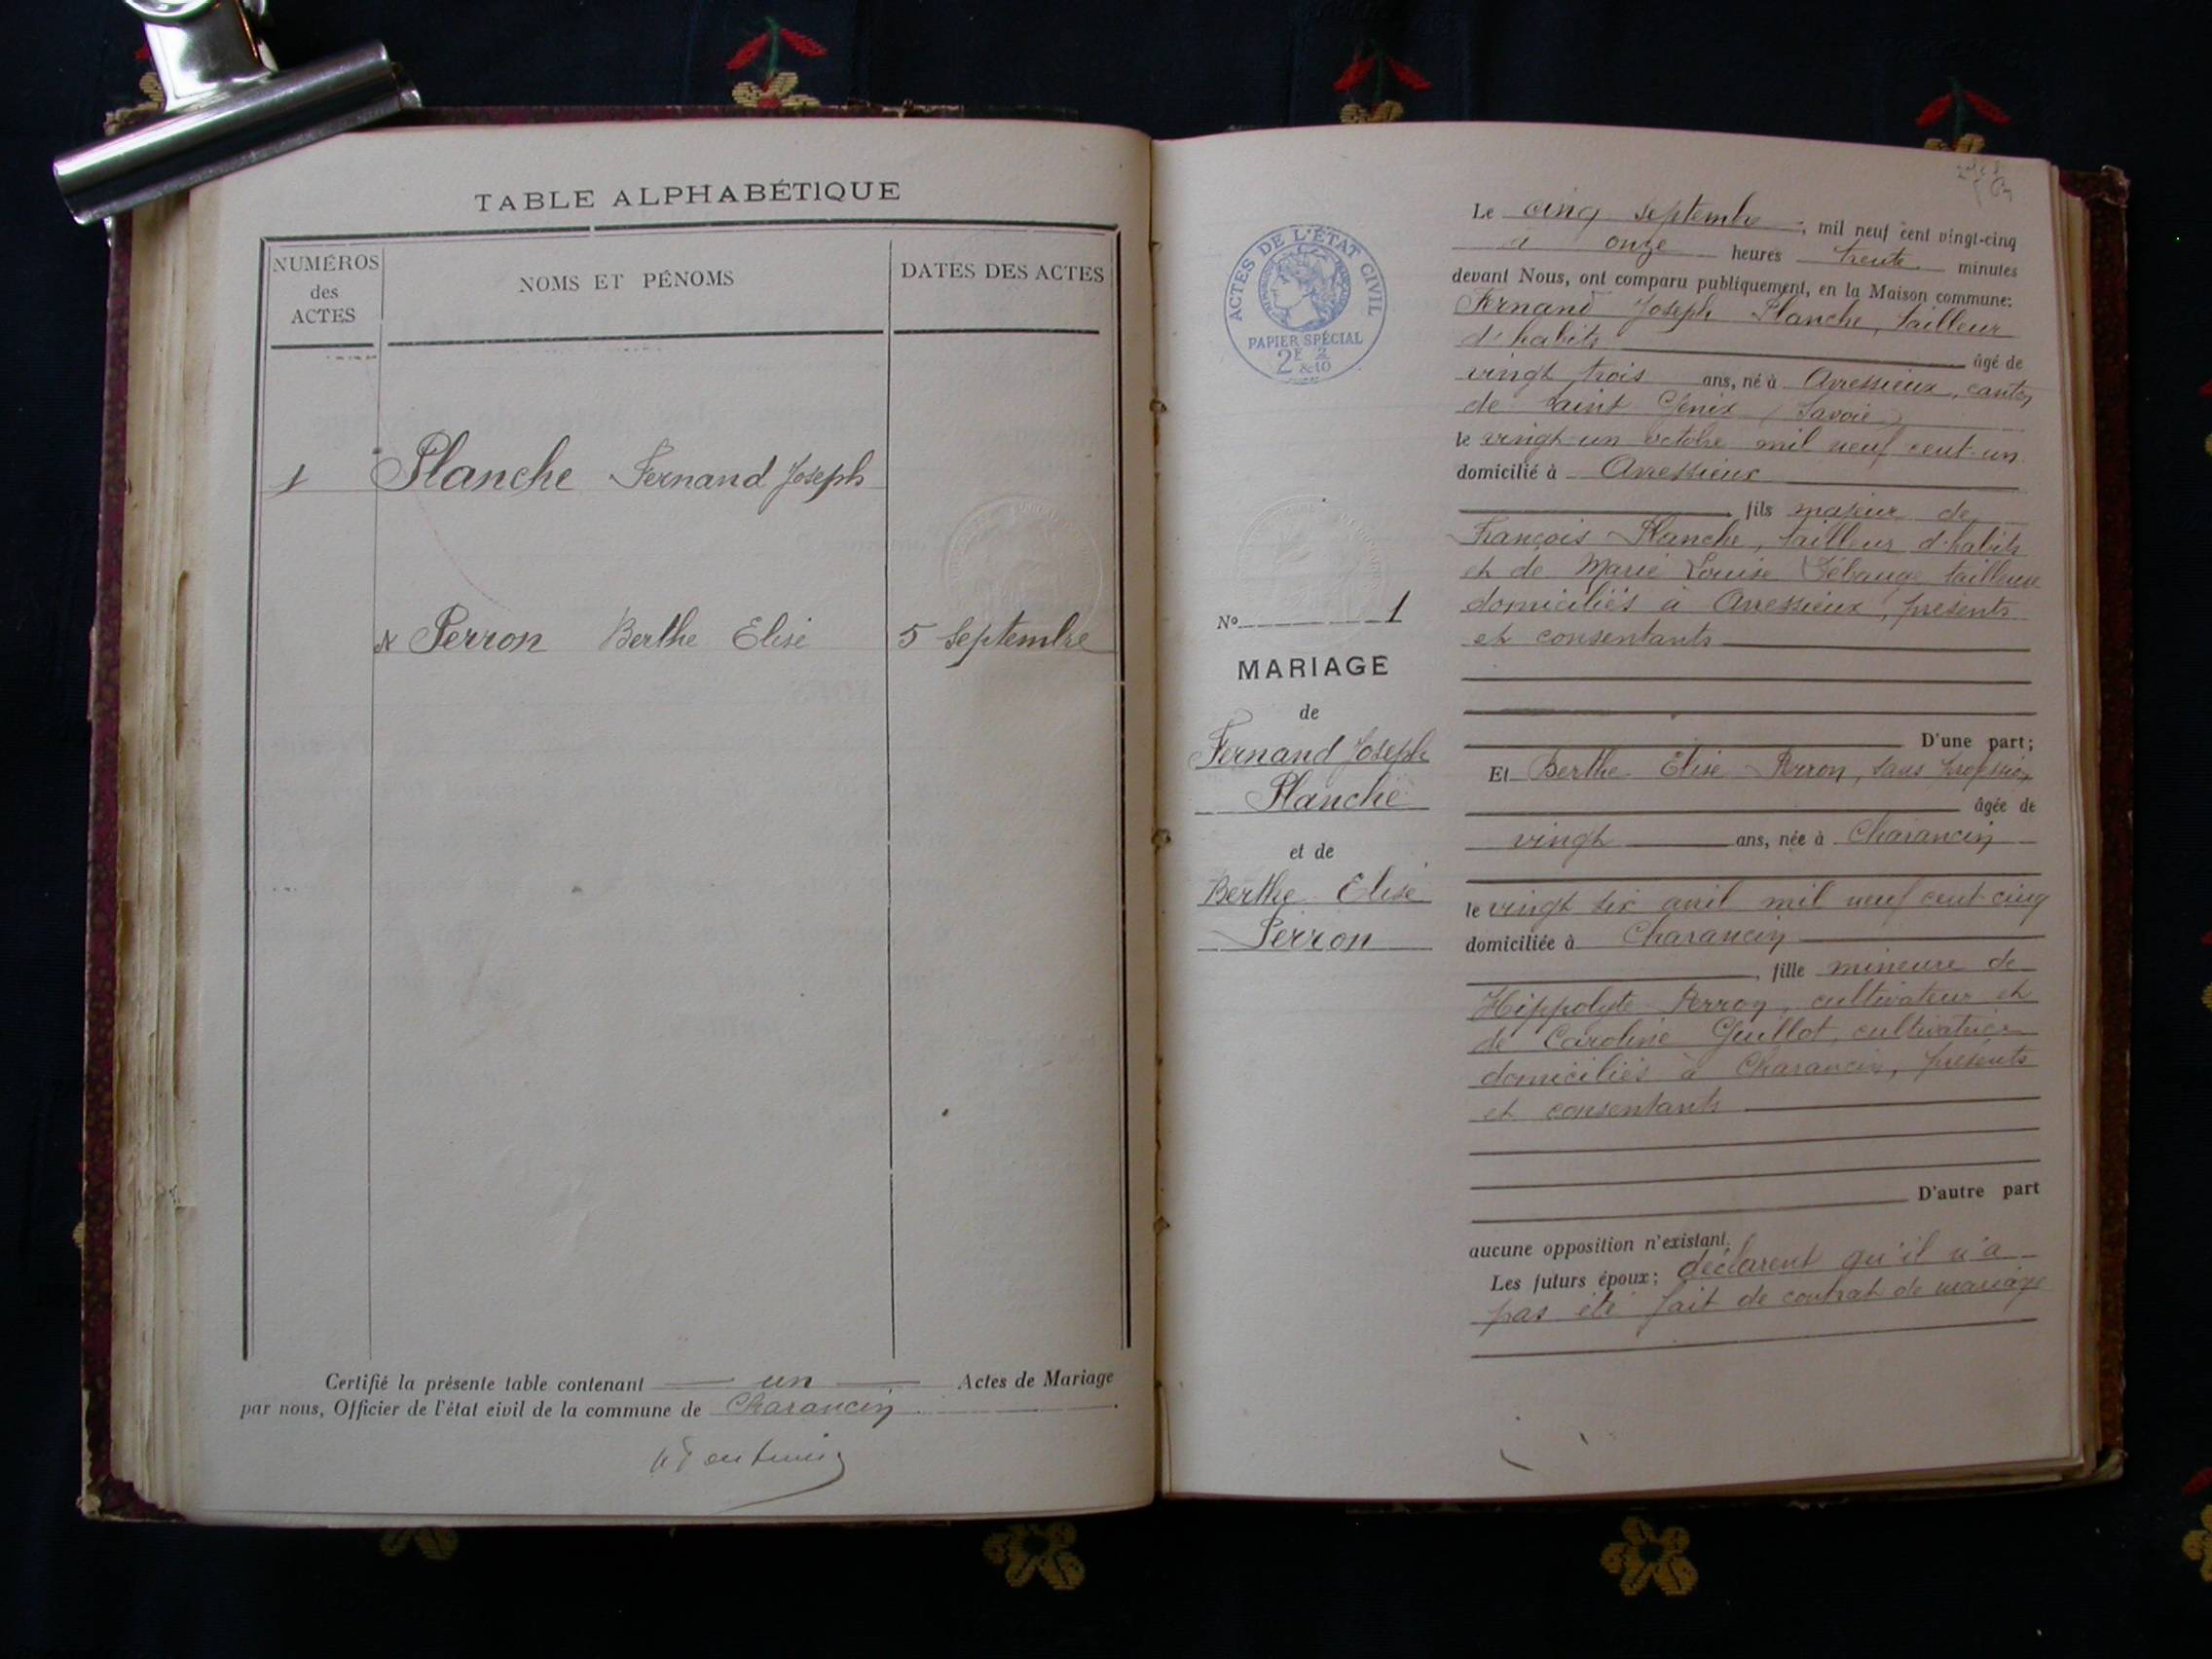 TABLE ALPHABÉTIQUE
NUMÉROS
des
ACTES
NOMS ET PÉNOMS
DATES DES ACTES
1 Planche Fernand Joseph
& Perron Berthe Elise 5 Septembre
Certifié la présente table contenant un Actes de Mariage
par nous, Officier de l'état civil de la commune de Charancin
ACTES DE L'ÉTAT CIVIL
PAPIER SPÉCIAL
2F &2/10
No 1
MARIAGE
de
Fernand Joseph
Planche
et de
Berthe Elise
Perron
Le cinq septembre, mil neuf cent vingt-cinq
à onze heures trente minutes
devant Nous, ont comparu publiquement, en la Maison commune:
Fernand Joseph Planche, tailleur
d'habits âgé de
vingt trois ans, né à Avressieux, canton
de Saint Genix (Savoie)
le vingt-un octobre mil neuf cent-un
domicilié à Avressieux
fils majeur de
François Planche, tailleur d'habits
et de Marie Louise tailleuse
domiciliés à Avressieux, présents
et consentants
D'une part;
Et Berthe Elise Perron, sans profession
âgée de
vingt ans, née à Charancin
le vingt six avril mil neuf cent-cinq
domiciliée à Charancin
, fille mineure de
Hippolyte Perron, cultivateur et
de Caroline Guillot, cultivatrice
domiciliés à Charancin, présents
et consentants
D'autre part
aucune opposition n'existant.
Les futurs époux; déclarent qu'il n'a
pas été fait de contrat de mariage